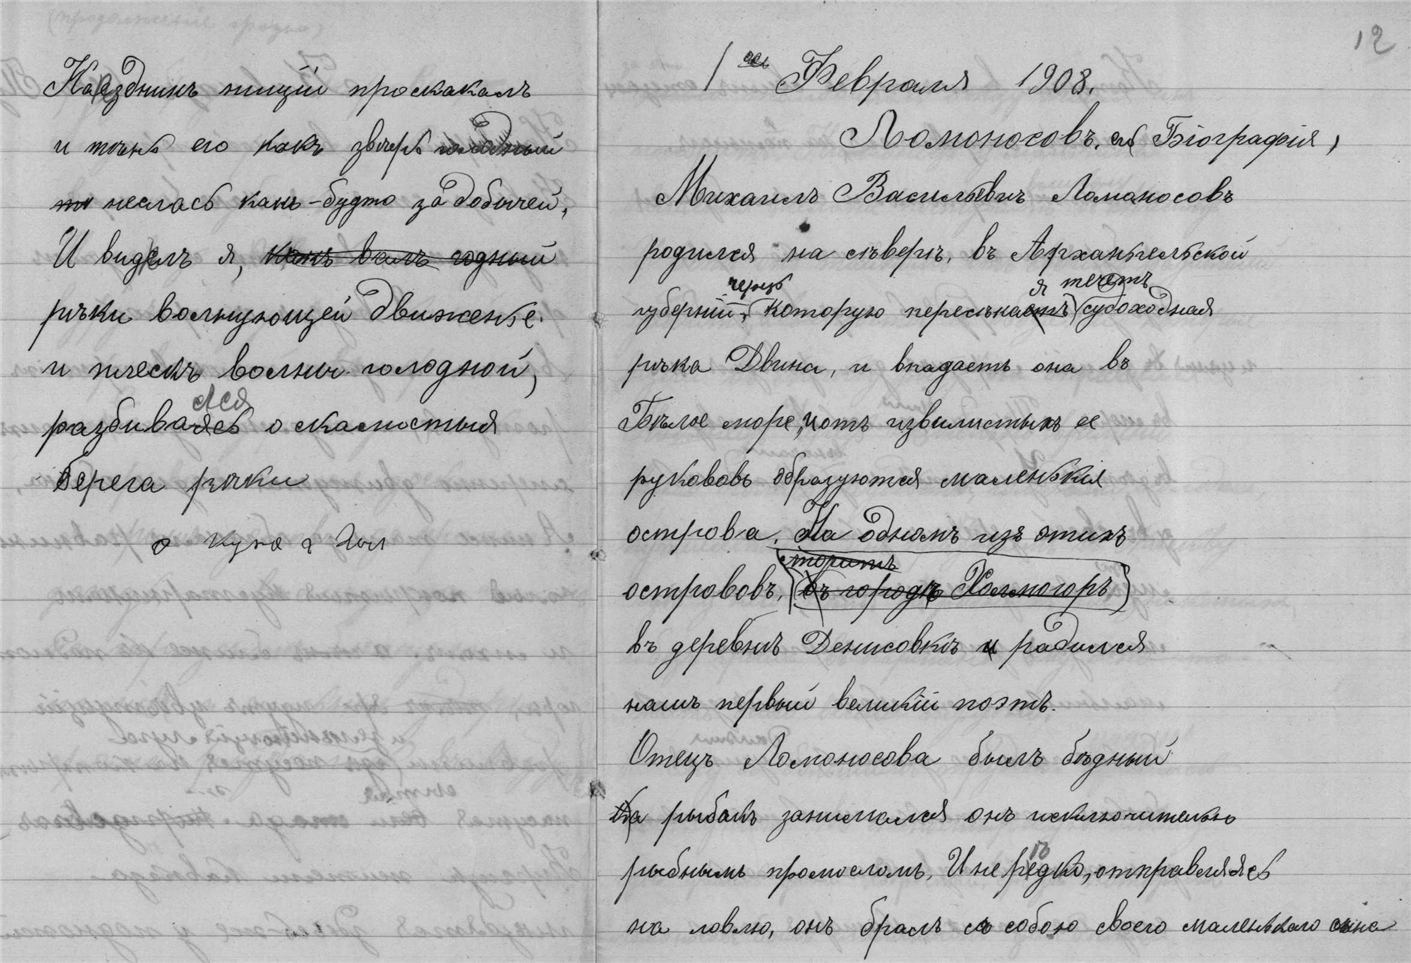 Наездникъ нищій проскакалъ
и тѣнь его какъ звѣрь голодный
неслась какъ-будто за добычей,
И виделъ я, какъ валъ годный
рѣчки волнующей движенье.
и плескъ волны голодной,
лся
разбиваясь о скалистыя
берега рѣчки
12
1го Февраля 1908.
Ломоносовъ, его Біографія,
Михаилъ Васильевичъ Ломоносовъ
родился на сѣверѣ, въ Архангельской
черезъ я течетъ
губерніи, которую пересѣкаетъ (судоходная
рѣка Двина, и впадаетъ она въ
Бѣлое море, и отъ извилистыхъ ее
рукововъ образуются маленькія
острова. На одномъ изъ этихъ
острововъ, въ городѣ Холмогоръ
въ деревнѣ Денисовкѣ и радился
нашъ первый великій поэтъ.
Отецъ Ломоносова былъ бѣдный
рыбакъ занимался онъ исключительно
ѣ
рыбнымъ промосломъ, И не редко, отправляясь
на ловлю, онъ бралъ съ собою своего маленькаго сына